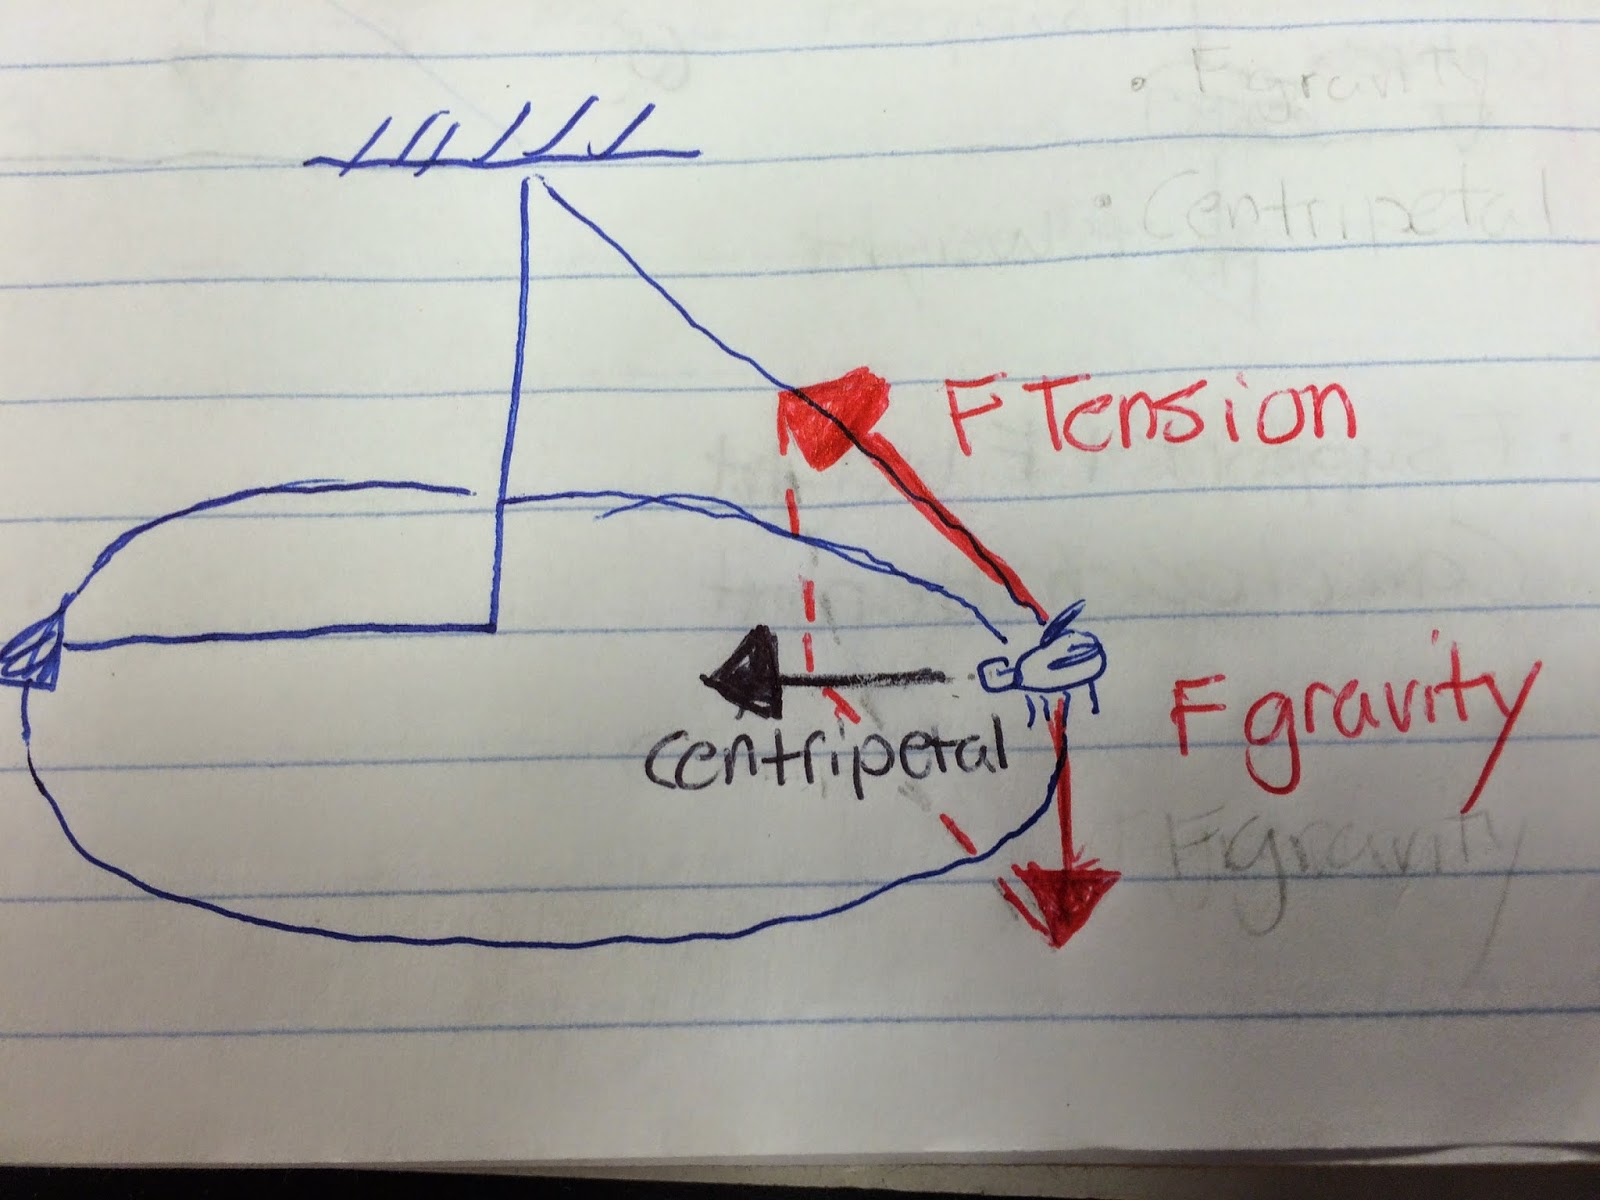 Fgravity
Centripetal
F Tension
Fgravity
centripetal
Fgravity